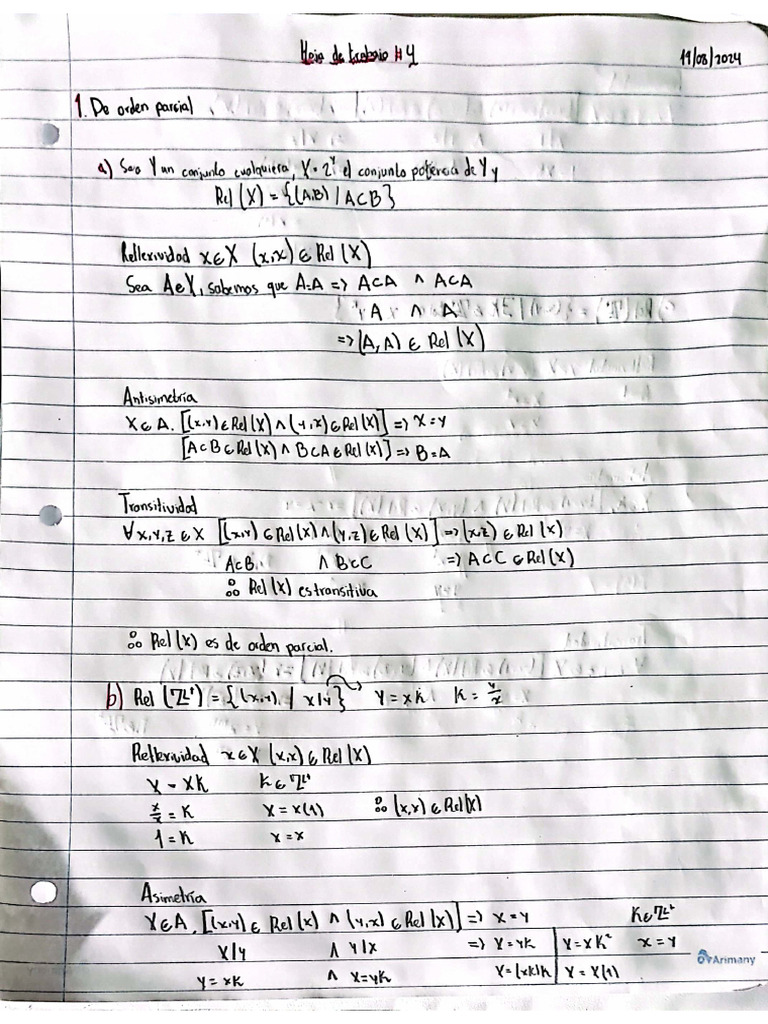 Hoja de trabajo #4
19/08/2024
1. De orden parcial
a) Sea Y un conjunto cualquiera, X = 2^Y el conjunto potencia de Y y
Rel (X) = {(A,B) / A⊂B}
Reflexividad x∈X (x,x) ∈ Rel (X)
Sea A∈X, sabemos que A=A => A⊂A ∧ A⊂A
A ∧ A
=> (A, A) ∈ Rel (X)
Antisimetría
X∈A. [(x,y)∈Rel(X) ∧ (y,x)∈Rel(X)] => X=Y
[A⊂B∈Rel(x) ∧ B⊂A∈Rel(x)] => B=A
Transitividad
∀x,y,z∈X [(x,y)∈Rel(X) ∧ (y,z)∈Rel(X)] => (x,z)∈Rel(x)
A⊂B ∧ B⊂C => A⊂C ∈Rel(X)
∴ Rel (X) es transitiva
∴ Rel (X) es de orden parcial.
b) Rel (ℤ⁺) = {(x,y) / x|y} Y = xK K = y/x
Reflexividad x∈X (x,x)∈Rel(X)
X = XK K∈ℤ⁺
x/x = K X = X(1) ∴ (x,x)∈Rel(X)
1 = K x = x
Asimetría
X∈A. [(x,y)∈ Rel (x) ∧ (y,x)∈Rel(x)] => X=Y K∈ℤ⁺
X|y ∧ Y|X => X=YK X=XK² x=y
Y = xK ∧ X=YK X=(xK)K X = X(1)
Arimany